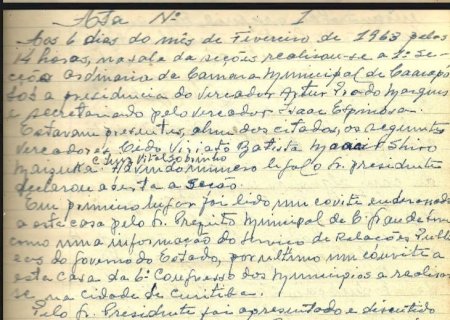 Ata Nº 1
Aos 6 dias do mês de Fevereiro de 1963 pelas
14 horas, na sala da seções realisou-se a 1ª Se-
ção Ordinaria da Camara Municipal de Caarapó
sob a presidencia do vereador Artur Prado Marques
e secretariado pelo vereador Isaac Espinosa.
Estavam presentes, alem dos citados, os seguintes
vereadores, Viriato Batista Shiro
e Luiz Vital Sobrinho
Havendo numero legal o Sr. presidente
declarou aberta a Seção.
Em primeiro lugar foi lido um convite endereçado
a esta casa pelo Sr. Prefeito Municipal de
como uma informação do Serviço de Relações Publi-
cas do Governo do Estado, por ultimo um convite a
esta Casa do 6º Congresso dos Municipios a realisar-
se na cidade de Curitiba.
Pelo Sr. Presidente foi apresentado e discutido